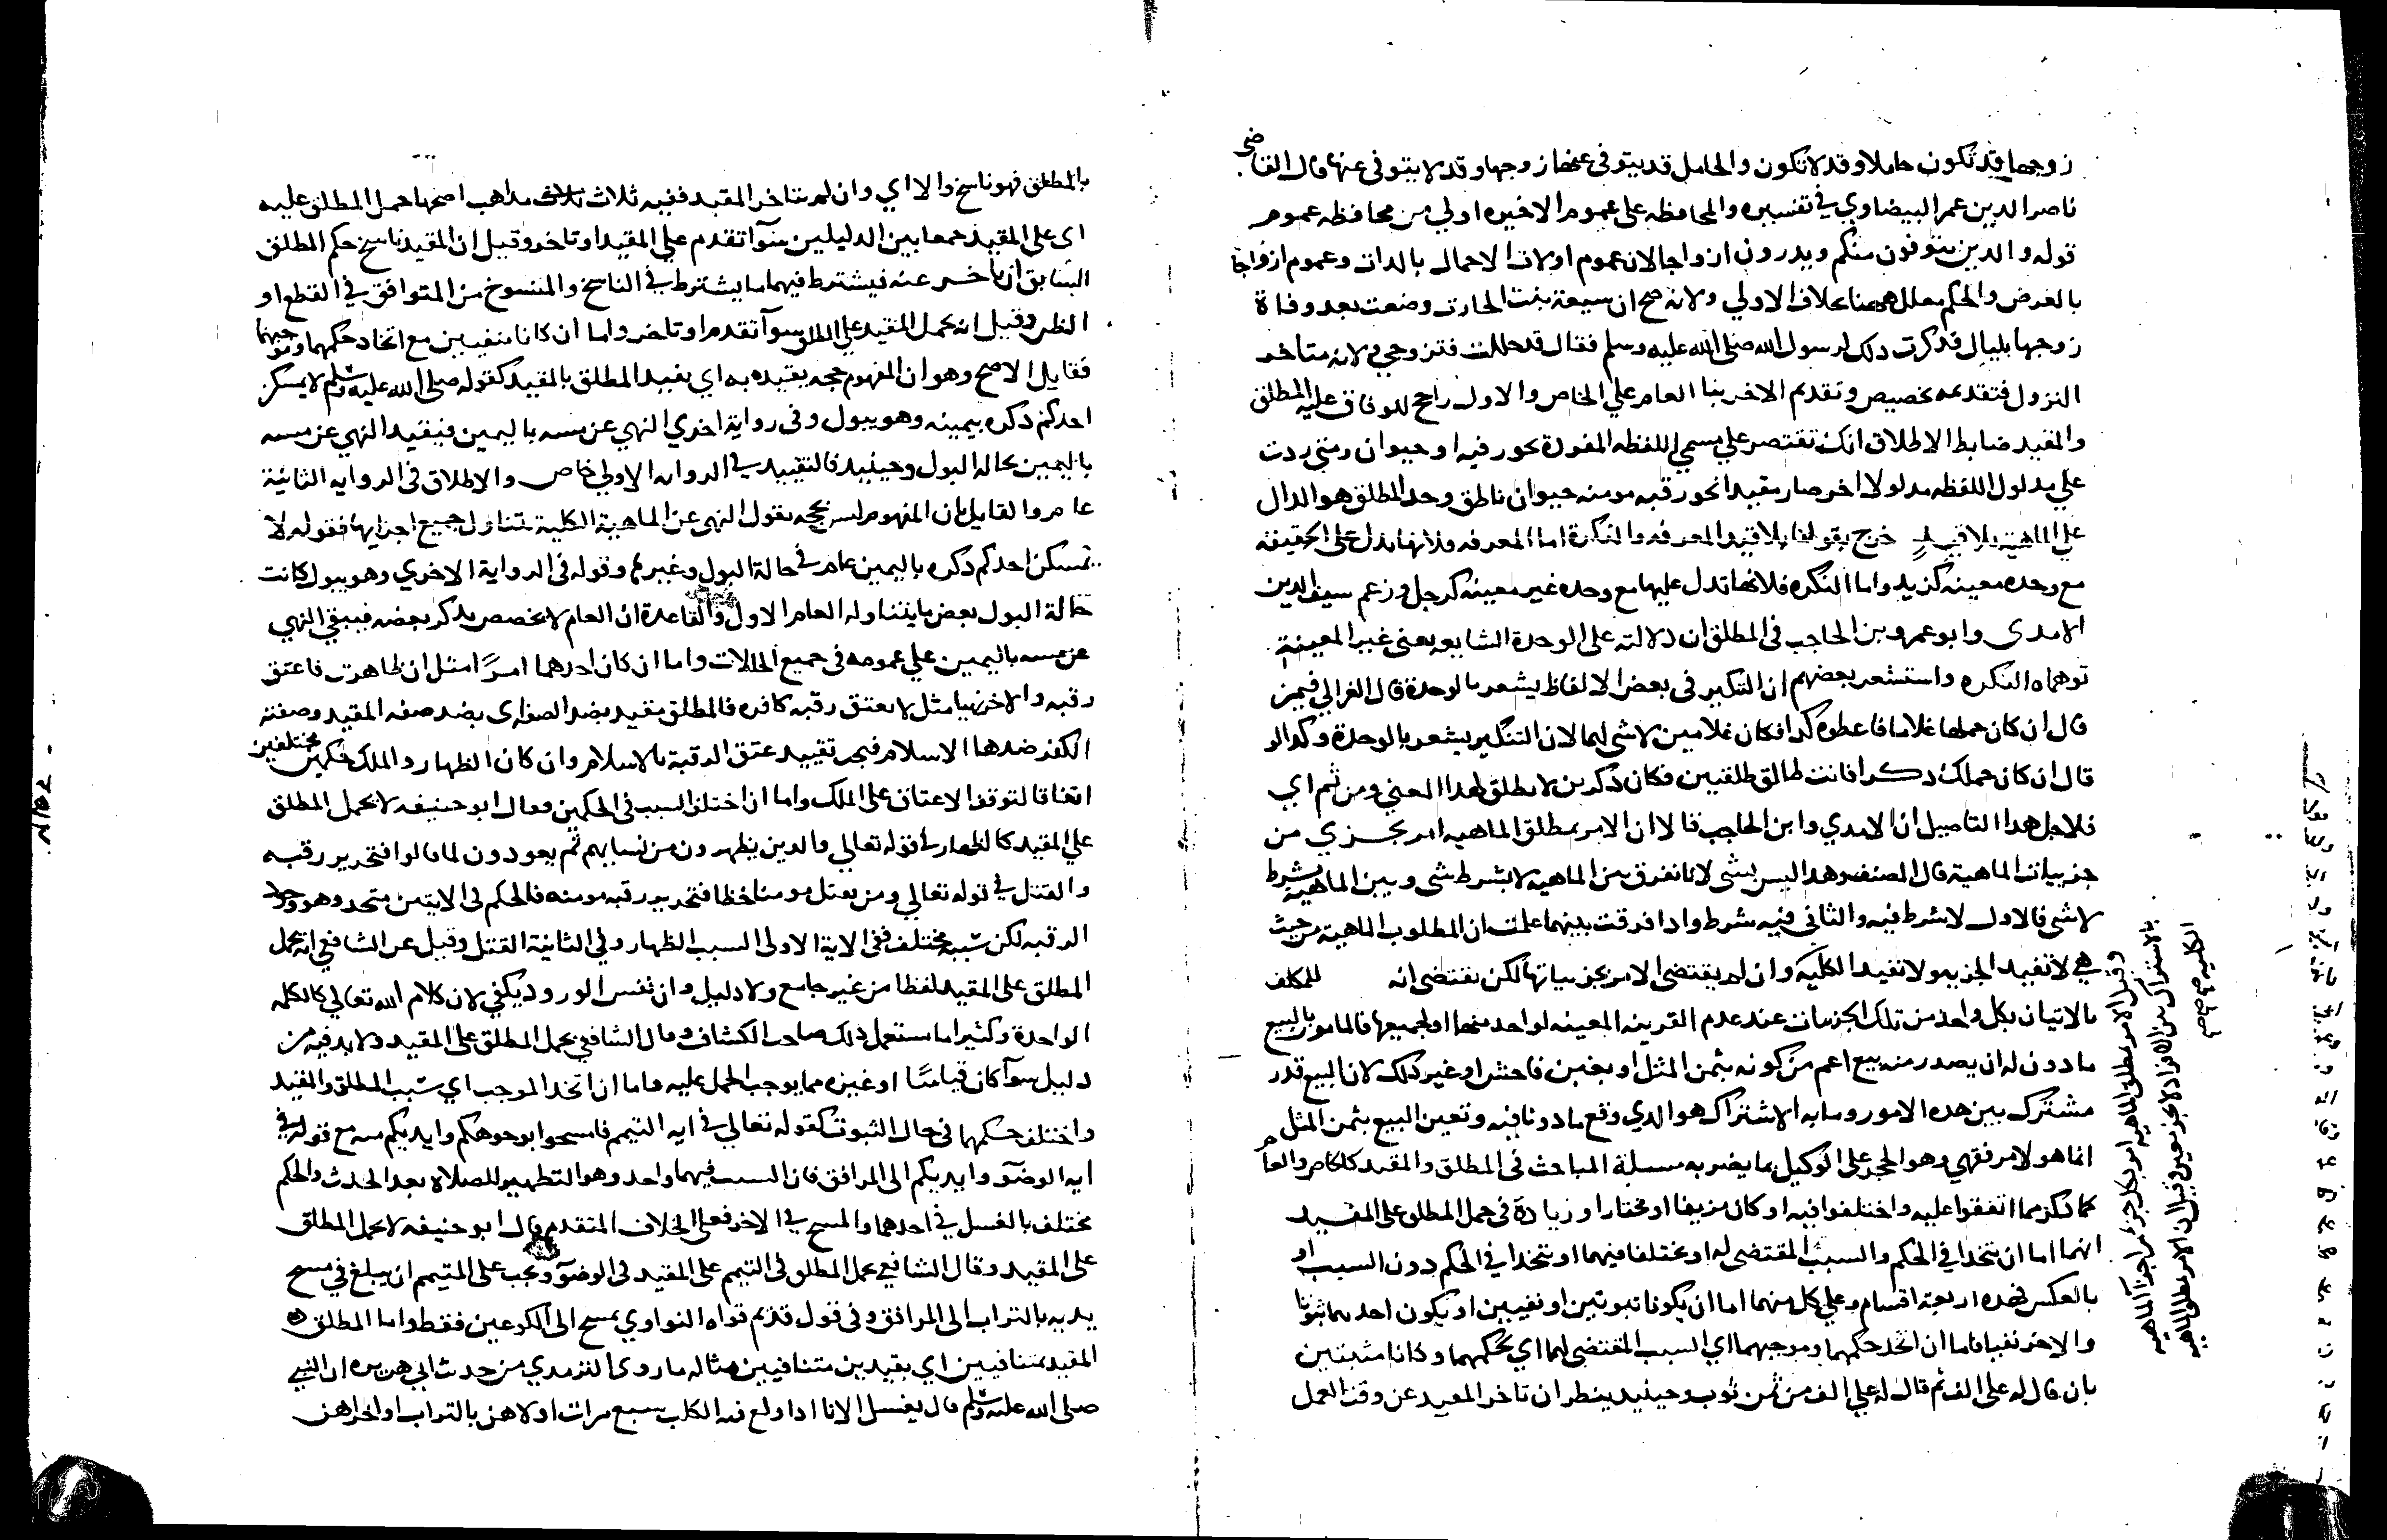 زوجها قد تكون حاملا وقد لا تكون والحامل قد يتوفى عنها زوجها وقد لا يتوفى عنها قال القاضي
ناصر الدين عمر البيضاوي في تفسيره والمحافظه على عموم الاخيره اولي من محافظه عموم
قوله والدين يتوفون منكم ويدرون ازواجا لان عموم اولات الاحمال بالدات وعموم ازواجا
بالعرض والحكم معلل ههنا بخلاف الاولي ولانه صح ان سبيعة بنت الحارث وضعت بعد وفاة
زوجها بليال فدكرت دلك لرسول الله صلى الله عليه وسلم فقال قد حللت فتزوجي ولانه متاخر
النزول فتقديمه تخصيص وتقديم الاخر بنا العام علي الخاص والاول راجح للوفاق عليه المطلق
والمقيد ضابط الاطلاق انك تقتصر علي مسمي اللفظه المفردة نحو رقبه او حيوان ومتى زدت
علي مدلول اللفظه مدلولا اخر صار مقيدا نحو رقبه مومنه حيوان ناطق وحد المطلق هو الدال
علي الماهية بلا قيد خرج بقولنا بلا قيد المعرفه والنكرة اما المعرفه فلانها تدل على الحقيقه
مع وحده معينه كزيد واما النكره فلانها تدل عليها مع وحده غير معينه كرجل وزعم سيف الدين
الامدى وابو عمرو بن الحاجب في المطلق ان دلالته على الوحدة الشايعه يعنى غير المعينة
توهماه النكره واستشعر بعضهم ان التنكير فى بعض الالفاظ يشعر بالوحدة قال الغزالي فيمن
قال ان كان حملها غلاما فاعطوه كدا فكان غلامين لا شى لهما لان التنكير يشعر بالوحدة وكدا لو
قال ان كان حملك دكرا فانت طالق طلقتين فكان دكرين لا تطلق لهدا المعني ومن ثم اي
فلاجل هدا التاصيل ان الامدي وابن الحاجب قالا ان الامر بمطلق الماهيه امر بجزي من
جزييات الماهية قال المصنف وهدا ليس بشى لانا نفرق بين الماهيه لا بشرط شى وبين الماهية بشرط
لا شي فالاول لا شرط فيه والثانى فيه شرط وادا فرقت بينهما علمت ان المطلوب الماهية من حيث
هي لا تقيد الجزييه ولا تقيد الكليه وان لم يقتضى الامر بجزيياتها لكن يقتضى انه للمكلف
بالاتيان بكل واحد من تلك الجزيات عند عدم القرينه المعينه لواحد منها او لجميعها فالمامور بالبيع
مادون له ان يصدر منه بيع اعم من كونه بثمن المثل او بغبن فاحش او غير دلك لان البيع قدر
مشترك بين هده الامور وما به الاشتراك هو الدي وقع مادونا فيه وتعين البيع بثمن المثل
انما هو لامر فقهي وهو الحجر على الوكيل بما يضر به مسىلة المباحث فى المطلق والمقيد كالخاص والعام
كما دكر مما اتفقوا عليه واختلفوا فيه او كان مزيفا او مختارا وزيادة فى حمل المطلق على المقيد
انهما اما ان يتحدا في الحكم والسبب المقتضى له او يختلفا فيهما او يتحدا في الحكم دون السبب او
بالعكس فهده اربعة اقسام وعلي كل منهما اما ان يكونا ثبوتين او نفيين او يكون احدهما ثبوتا
والاخر نفيا فاما ان اتحد حكمهما وموجبهما اي السبب المقتضي لهما اي لحكمهما وكانا مثبتين
بان قال له على الف ثم قال له علي الف من ثمن ثوب وحينيد ينظر ان تاخر المقيد عن وقت العمل
وقيل الامر بمطلق الماهيه امر بكل جزء من اجزآ الماهيه
وقيل ان الامر بمطلق الماهيه
بالمطلق فهو ناسخ والا اي وان لم يتاخر المقيد ففيه ثلاث مداهب اصحها حمل المطلق عليه
اى على المقيد جمعا بين الدليلين سوآ تقدم علي المقيد او تاخر وقيل ان المقيد ناسخ حكم المطلق
السابق ان تاخر عنه فيشترط فيهما ما يشترط في الناسخ والمنسوخ من التوافق في القطع او
الظن وقيل انه يحمل المقيد علي المطلق سوآ تقدم او تاخر واما ان كانا منفيين مع اتحاد حكمهما وموجبهما
فقايل الاصح وهو ان المفهوم حجه يقيده به اي يقيد المطلق بالمقيد كقوله صلى الله عليه وسلم لا يمسكن
احدكم دكره بيمينه وهو يبول وفى رواية اخري النهي عن مسه باليمين فيقيد النهي عن مسه
باليمين بحاله البول وحينيد فالتقييد في الروايه الاولي خاص والاطلاق فى الروايه الثانية
عام والقايل بان المفهوم ليس بحجه يقول النهى عن الماهية الكلية يتناول جميع اجزايها فقوله لا
يمسكن احدكم دكره باليمين عام في حالة البول وغيرها وقوله فى الرواية الاخري وهو يبول كانت
حالة البول بعض ما يتناوله العام الاول والقاعدة ان العام لا يخصص بدكر بعضه فيبقي النهي
عن مسه باليمين علي عمومه فى جميع الحالات واما ان كان احدهما امرًا مثل ان ظاهرت فاعتق
رقبه والاخر نهيا مثل لا تعتق رقبه كافره فالمطلق مقيد بضد الصفه اى بضد صفه المقيد وصفته
الكفر ضدها الاسلام فيجب تقييد عتق الرقبة بالاسلام وان كان الظهار والملك حكمين مختلفين
اتفاقا لتوقف الاعتاق على الملك واما ان اختلف السبب فى الحكمين فقال ابو حنيفه لا يحمل المطلق
علي المقيد كالظهار في قوله تعالي والدين يظهرون من نسايهم ثم يعودون لما قالوا فتحرير رقبه
والقتل في قوله تعالي ومن يقتل مومنا خطا فتحرير رقبه مومنه فالحكم في الايتين متحد وهو وجوب
الرقبه لكن سببه مختلف ففى الاية الاولى السبب الظهار وفي الثانية القتل وقيل عن الشافعي انه يحمل
المطلق على المقيد لفظا من غير جامع ولا دليل وان نفس الورود يكفي لان كلام الله تعالي كالكلمه
الواحدة وكثيرا ما يستعمل دلك صاحب الكشاف وقال الشافعي يحمل المطلق على المقيد ولا بد فيه من
دليل سوآ كان قياسًا او غيره مما يوجب الحمل عليه واما ان اتحد الموجب اي سبب المطلق والمقيد
واختلف حكمهما فى حال الثبوت كقوله تعالي في ايه التيمم فامسحوا بوجوهكم وايديكم منه مع قوله في
ايه الوضوَ وايديكم الى المرافق فان السبب فيهما واحد وهو التطهير للصلاة بعد الحدث والحكم
مختلف بالغسل في احدهما والمسح في الاخر فعلى الخلاف المتقدم قال ابو حنيفه لا يحمل المطلق
على المقيد وقال الشافعي يحمل المطلق فى التيمم على المقيد فى الوضوَ ويجب على المتيمم ان يبلغ في مسح
يديه بالتراب الى المرافق وفى قول قديم قواه النواوي يمسح الى الكوعين فقط واما المطلق
المقيد بمتنافيين اي بقيدين متنافيين مثاله ما روى الترمدي من حديث ابى هريره ان النبي
صلى الله عليه وسلم قال يغسل الانا ادا ولغ فيه الكلب سبع مرات اولاهن بالتراب او اخراهن